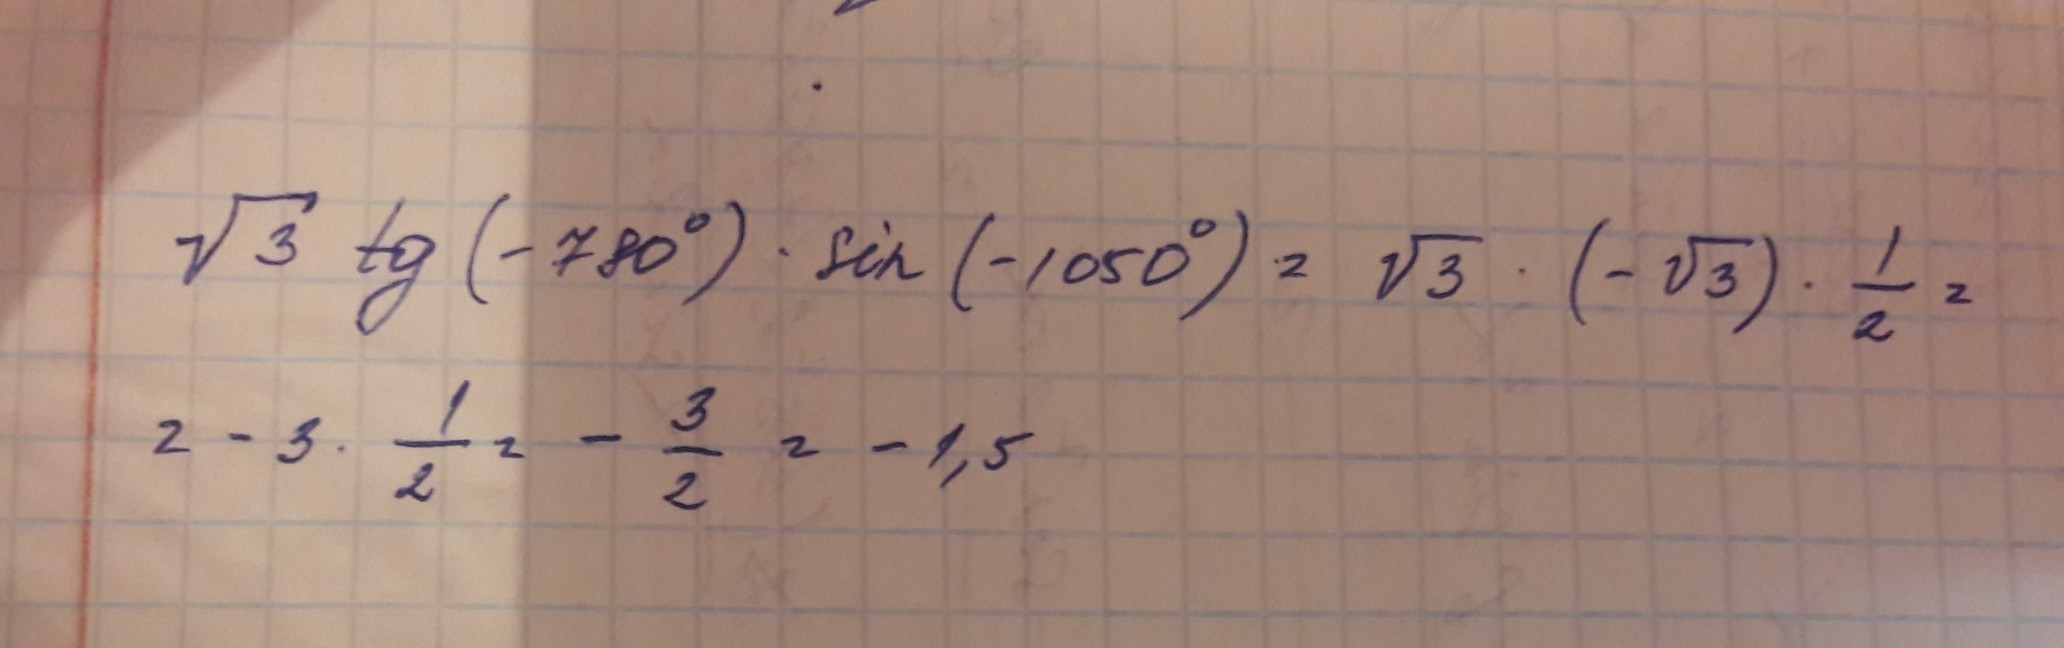 √3 tg (-780°) · sin (-1050°) = √3 · (-√3) · 1/2 =
= - 3 · 1/2 = - 3/2 = - 1,5